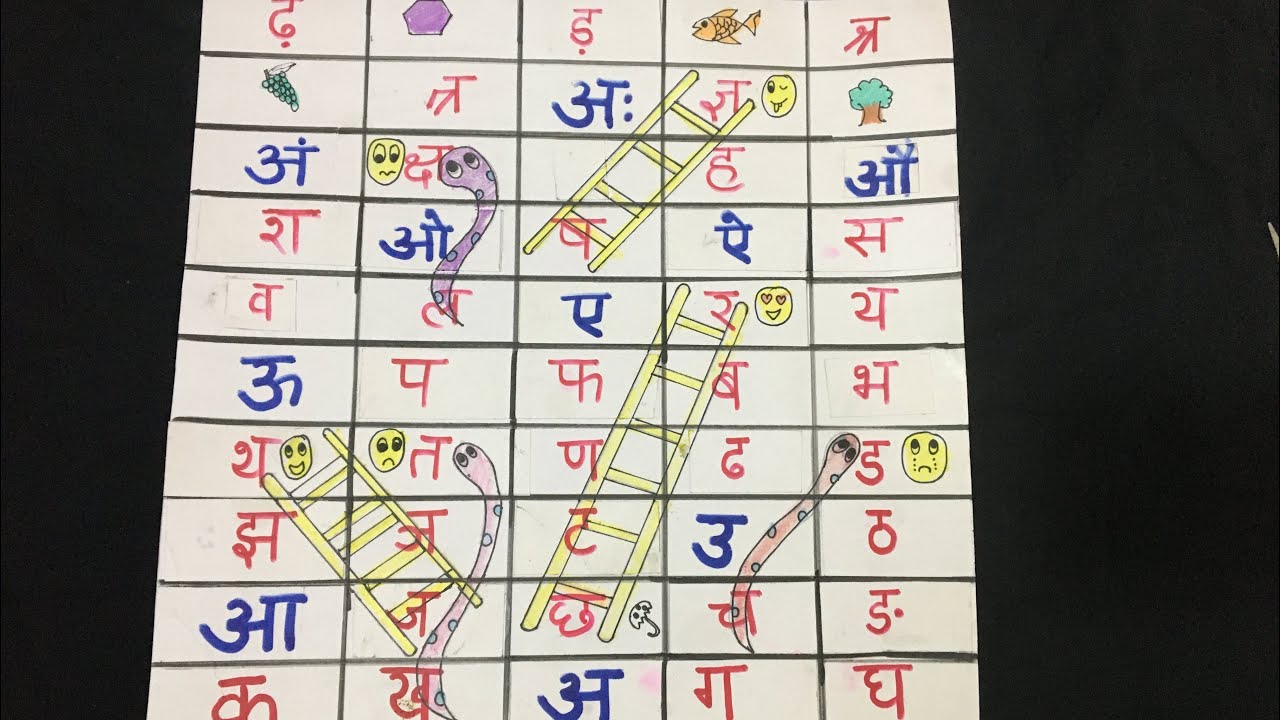 ढ़ ड़ श्र
त्र अः ज्ञ
अं क्ष ह औ
श ओ ष ऐ स
व ल ए र य
ऊ प फ ब भ
थ त ण ढ ड
झ ञ ट उ ठ
आ ज छ च ङ
क ख अ ग घ